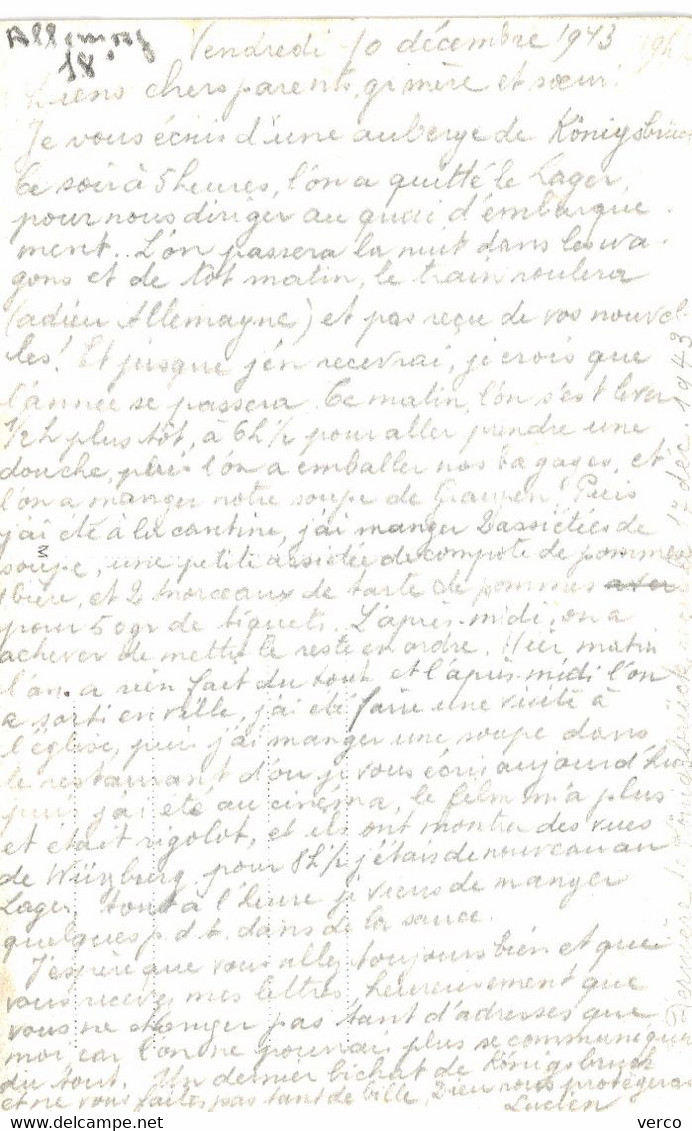 Allemag
18
Vendredi 10 décembre 1943 19h
Biens chers parents, gr mère et sœur.
Je vous écris d'une auberge de Königsbrück
Ce soir à 5 heures, l'on a quitté le Lager,
pour nous diriger au quai d'embarque-
ment. L'on passera la nuit dans les wa-
gons et de tôt matin, le train roulera
(adieu Allemagne) et pas reçu de vos nouvel-
les! Et jusque j'en recevrai, je crois que
l'année se passera. Ce matin, l'on s'est lever
1/2h plus tôt, à 6h1/2 pour aller prendre une
douche, puis l'on a emballer nos bagages, et
l'on a manger notre soupe de Graupen. Puis
j'ai été à la cantine, j'ai manger 2 assiétées de
soupe, une petite assiétée de compote de pommes
1 bière, et 2 morceaux de tarte de pommes
pour 50gr de tiquets. L'après-midi, on a
achever de mettre le reste en ordre. Hier matin
l'on a rien fait du tout et l'après-midi l'on
a sorti en ville, j'ai été faire une visite à
l'église, puis j'ai manger une soupe dans
le restaurant d'ou je vous écris aujourd'hui
puis j'ai été au cinéma, le film m'a plus
et était rigolot, et ils ont montré des vues
de Würzburg, pour 8h1/2 j'étais de nouveau au
Lager. tout à l'heure je viens de manger
quelques p d t. dans de la sauce.
J'espère que vous allez toujours bien et que
vous recevez mes lettres, heureusement que
vous ne changer pas tant d'adresses que
moi car l'on ne pourrais plus se communiquer
du tout. Un dernier bichat de Königsbruck
et ne vous faites pas tant de bille, Dieu nous protégera
Lucien
Dernière de Königsbrück 17 dec. 1943